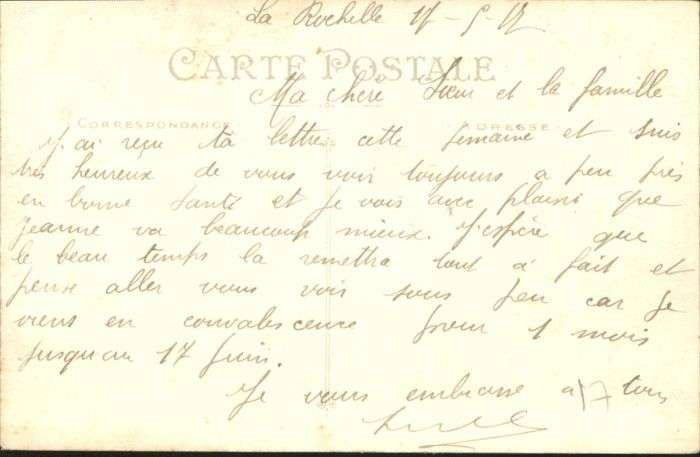 La Rochelle 17-5-17
CARTE POSTALE
Ma chère Sœur et la famille
CORRESPONDANCE
ADRESSE
J'ai reçu ta lettre cette semaine et suis
très heureux de vous voir toujours a peu près
en bonne santé et je vois avec plaisir que
Jeanne va beaucoup mieux. J'espère que
le beau temps la remettra tout à fait et
pense aller vous voir sous peu car je
viens en convalescence pour 1 mois
jusqu au 17 juin.
Je vous embrasse a tous
17